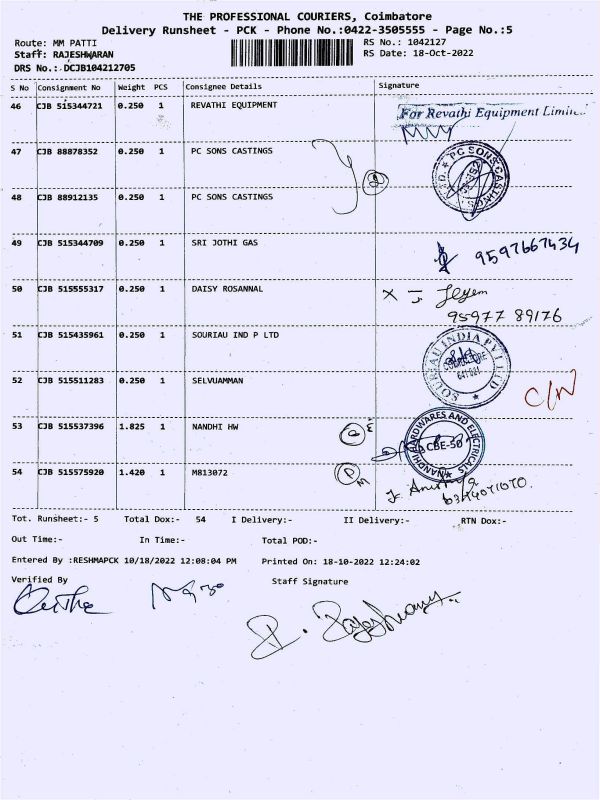 THE PROFESSIONAL COURIERS, Coimbatore
Delivery Runsheet - PCK - Phone No.:0422-3505555 - Page No.:5
Route: MM PATTI
RS No.: 1042127
Staff: RAJESHWARAN
RS Date: 18-Oct-2022
DRS No.: DCJB104212705
S No Consignment No Weight PCS Consignee Details Signature
46 CJB 515344721 0.250 1 REVATHI EQUIPMENT
For Revathi Equipment Limi
47 CJB 88878352 0.250 1 PC SONS CASTINGS
PC SONS CASTINGS
48 CJB 88912135 0.250 1 PC SONS CASTINGS
49 CJB 515344709 0.250 1 SRI JOTHI GAS
9597667434
50 CJB 515555317 0.250 1 DAISY ROSANNAL
95977 89176
51 CJB 515435961 0.250 1 SOURIAU IND P LTD
SOURIAU INDIA PVT LTD
COIMBATORE
641021
52 CJB 515511283 0.250 1 SELVUAMMAN
C/N
53 CJB 515537396 1.825 1 NANDHI HW
NANDHI HARDWARES AND ELECTRICALS
CBE-50
54 CJB 515575920 1.420 1 M813072
Tot. Runsheet:- 5 Total Dox:- 54 I Delivery:- II Delivery:- RTN Dox:-
Out Time:- In Time:- Total POD:-
Entered By :RESHMAPCK 10/18/2022 12:08:04 PM Printed On: 18-10-2022 12:24:02
Verified By Staff Signature